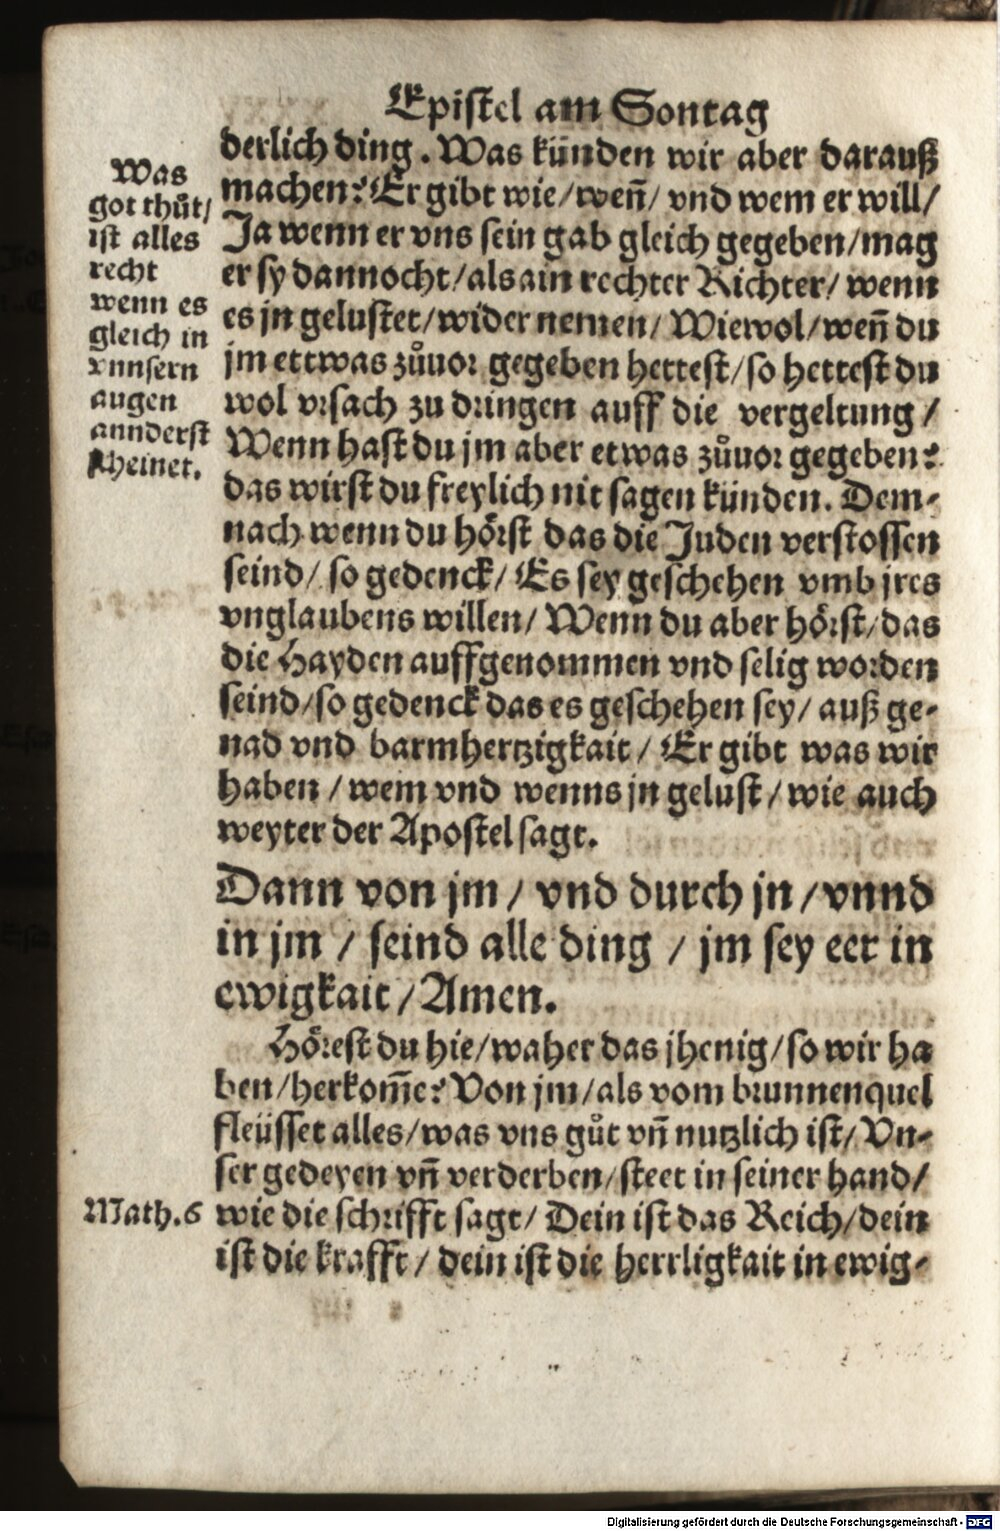 Epistel am Sontag
derlich ding. Was künden wir aber darauß
machen? Er gibt wie/ weñ/ vnd wem er will/
Ja wenn er vns sein gab gleich gegeben/ mag
er sy dannocht/ als ain rechter Richter/ wenn
es jn gelustet/ wider nemen/ Wiewol/ weñ du
jm ettwas zůuor gegeben hettest/ so hettest du
wol vrsach zu dringen auff die vergeltung/
Wenn hast du jm aber etwas zůuor gegeben?
das wirst du freylich nit sagen künden. Dem-
nach wenn du hörst das die Juden verstossen
seind/ so gedenck/ Es sey geschehen vmb jres
vnglaubens willen/ Wenn du aber hörst/ das
die Hayden auffgenommen vnd selig worden
seind/ so gedenck das es geschehen sey/ auß ge-
nad vnd barmhertzigkait/ Er gibt was wir
haben/ wem vnd wenns jn gelust/ wie auch
weyter der Apostel sagt.
Was
got thůt/
ist alles
recht
wenn es
gleich in
vnnsern
augen
annderst
scheinet.
Dann von jm/ vnd durch jn/ vnnd
in jm/ seind alle ding/ jm sey eer in
ewigkait/ Amen.
Hörest du hie/ waher das jhenig/ so wir ha
ben/ herkom̃e? Von jm/ als vom brunnenquel
fleüsset alles/ was vns gůt vñ nutzlich ist/ Vn-
ser gedeyen vñ verderben/ steet in seiner hand/
Math.6
wie die schrifft sagt/ Dein ist das Reich/ dein
ist die krafft/ dein ist die herrligkait in ewig-
Digitalisierung gefördert durch die Deutsche Forschungsgemeinschaft - DFG